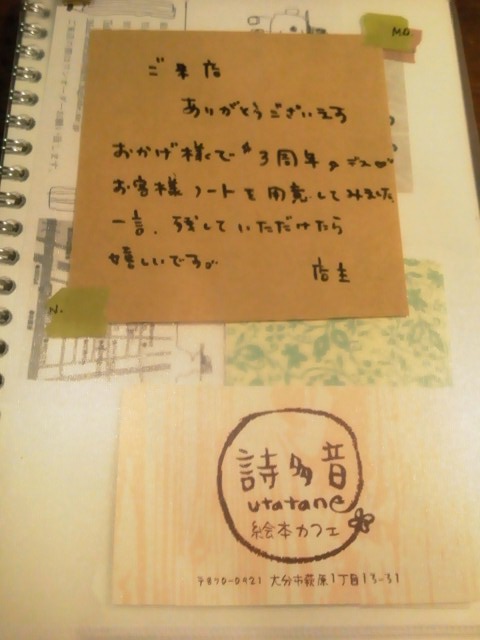 M.O.
ご来店
ありがとうございます
おかげ様で3周年のデスが
お客様ノートを用意してみました
一言、残していただけたら
嬉しいです。
店主
N.
詩多音
utatane
絵本カフェ
〒870-0921 大分市萩原1丁目13-31